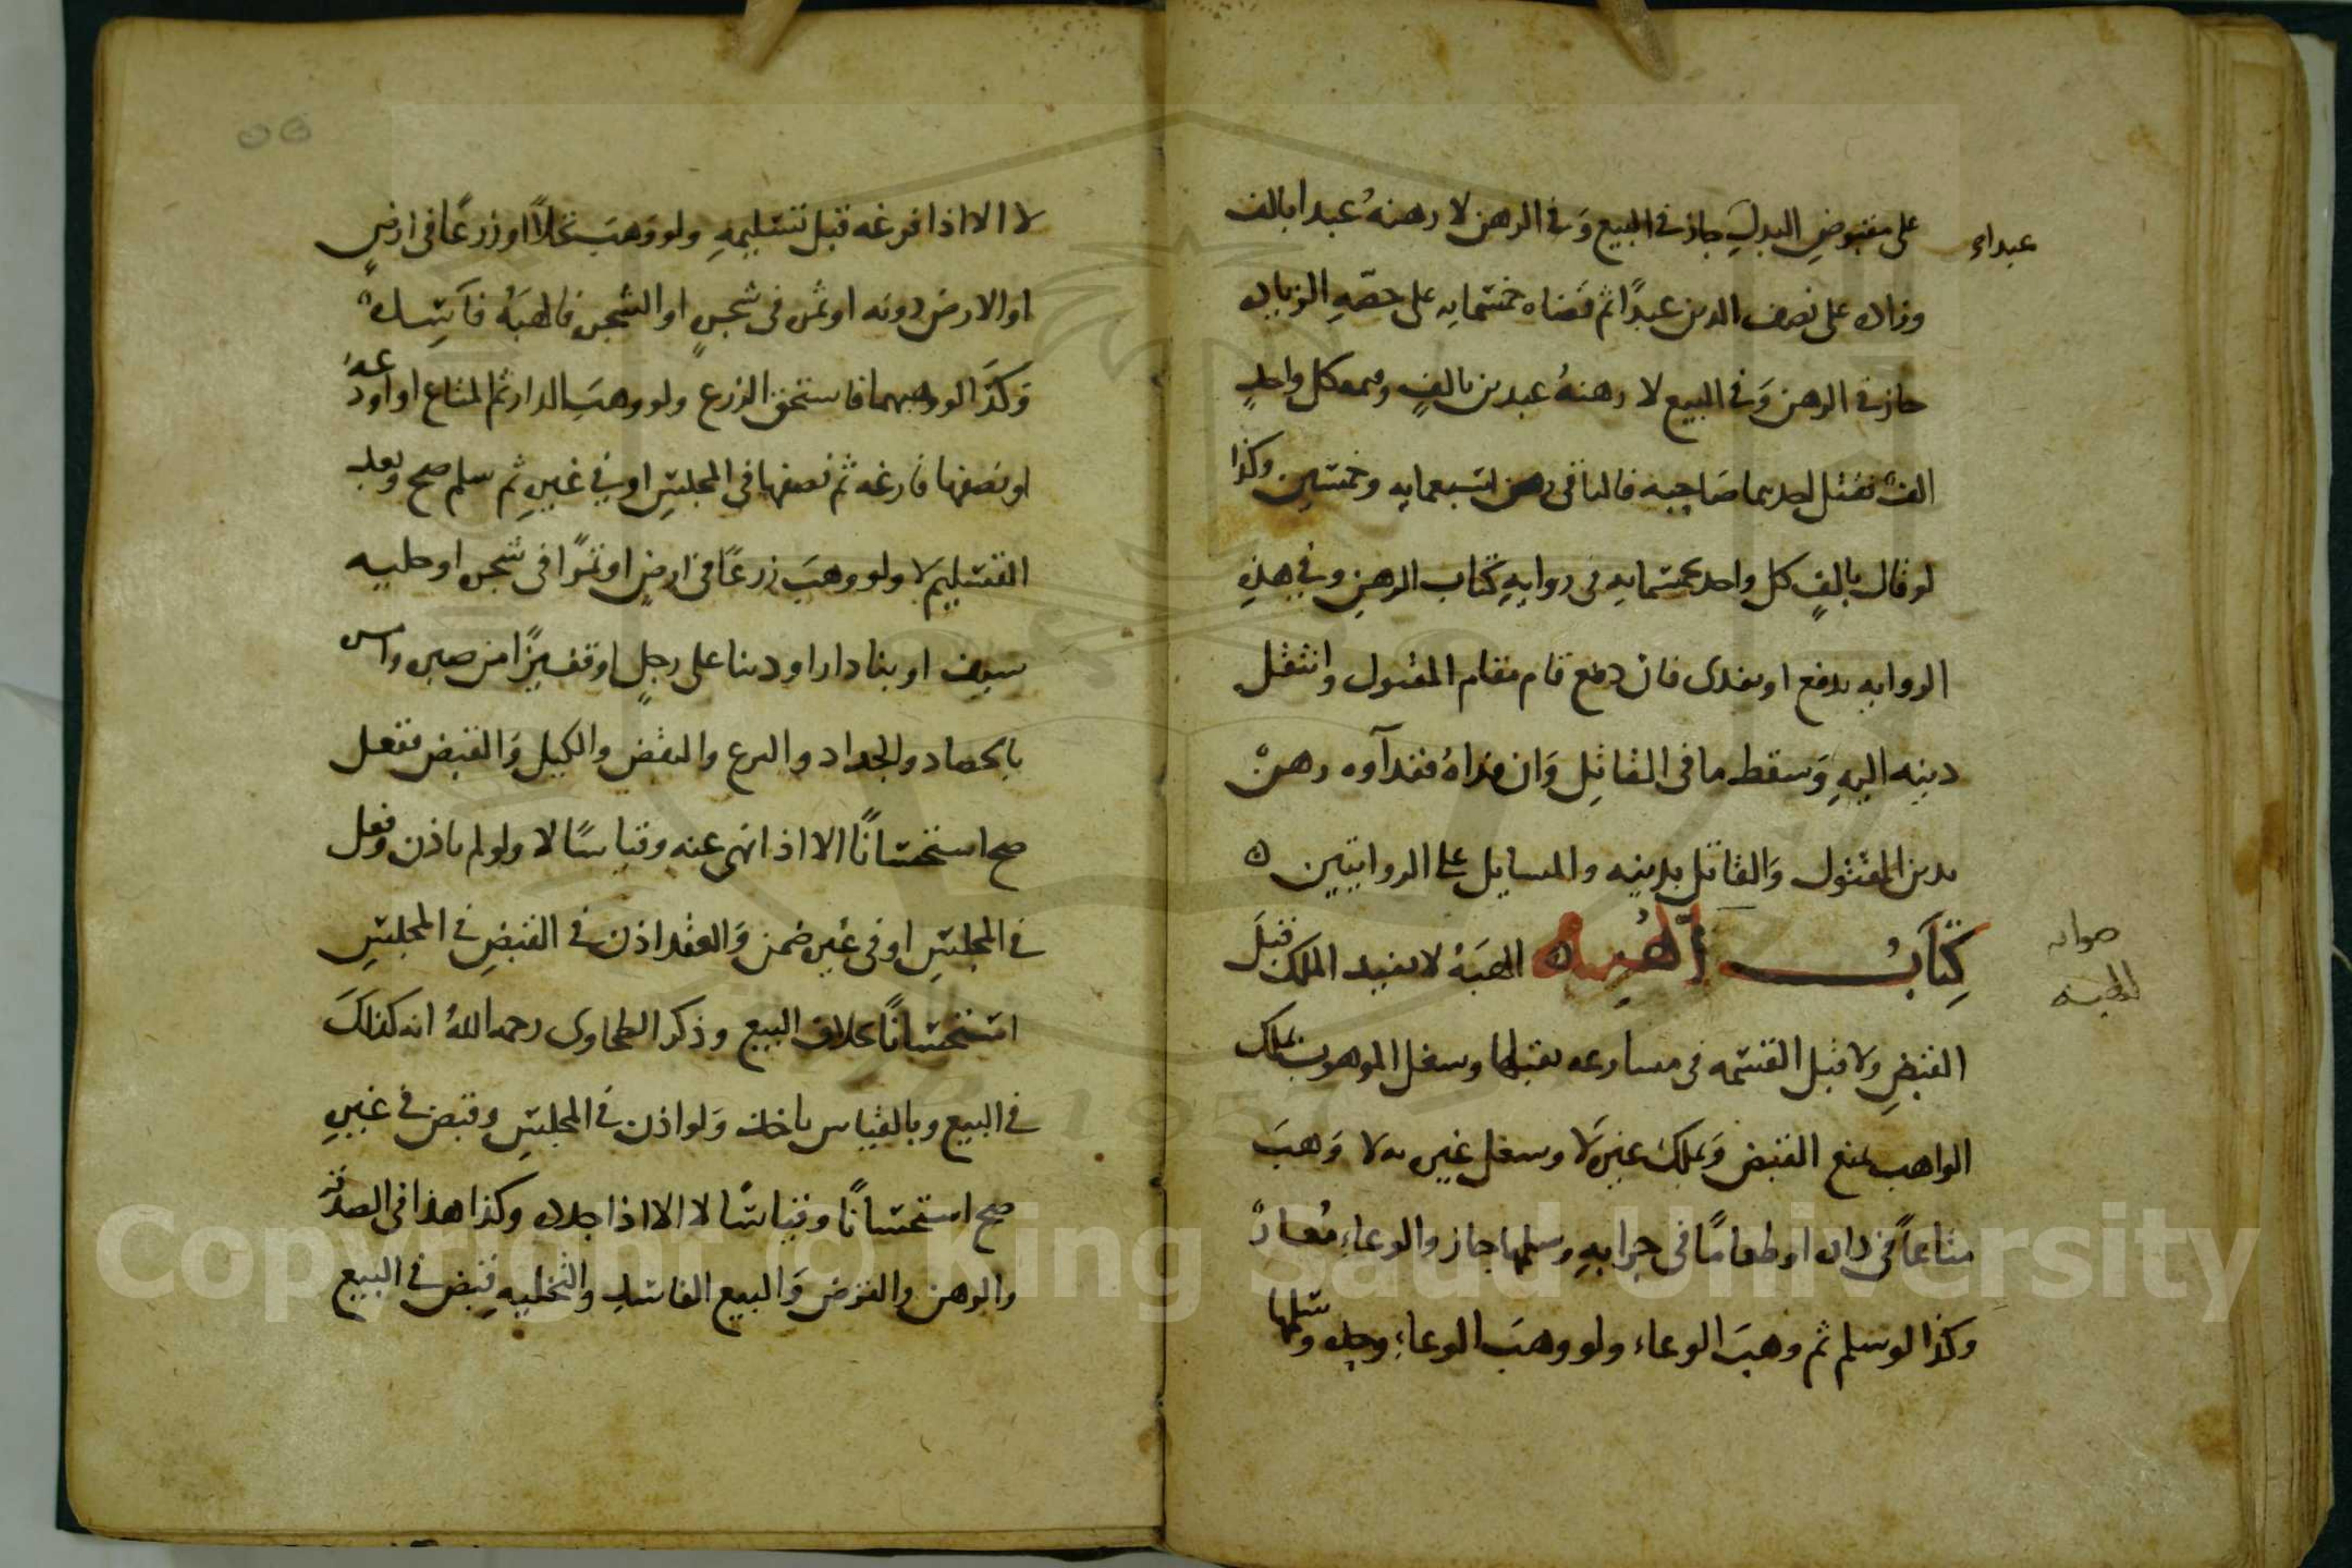 على مقبوض البدل جاز في البيع وفي الرهن لا رهنه عبدا بالف
عبداء
وزاده على نصف الدين عبدًا ثم قضاه خمسمايه على حصّهِ الزياده
جاز في الرهن وفي البيع لا رهنهُ عبدين بالفٍ وقيمه كل واحدٍ
الفٌ فقتل احدهما صاحبه فالباقي رهن بتسعمايه وخمسين وكذا
لو قال بالفٍ كل واحد بخمسمايه في روايهِ كتاب الرهنِ وفي هذهِ
الروايه يدفع او يفدى فان دفع قام مقام المقتول وانتقل
دينه اليهِ وسقط ما في القاتِل وَان فداهُ ففدآوه رهنٌ
بدين المقتول وَالقاتل بدينه والمسايل على الروايتين ه
كِتَابُ الهِبه ه الهبَهُ لا يفيد الملك قبلَ
صوابه
الهبه
القبضِ ولا قبل القسمه في مشاع يقبلها وشغل الموهوب بملك
الواهب يمنع القبض وَبملك غيره لا وشغل غيره به لا وَهبَ
متاعاً في داره او طعامًا في جرابهِ وسلمها جاز والوعاءِ مُعارٌ
وكذا لو سلم ثم وهبَ الوعاء ولو وهبَ الوعاءِ وحده وسلمها
لا الا اذا فرغه قبل تسليمهِ ولو وَهبَ نخلاً او زرعًا في ارضٍ
او الارض دونه او ثمر في شجرٍ او الشجر فالهبَهُ فاسِدهٌ
وَكذَا لو وهبهما فاستحق الزرع ولو وهبَ الدار ثم المتاع او اودعهُ
او نصفها فارغه ثم نصفها في المجلسِ او في غيرهِ ثم سلم صح وبعد
التسليم لا ولو وهبَ زرعًا في ارضٍ او ثمرًا في شجر او حليه
سيف او بنا دار او دينا على رجلٍ او قفيزًا من صبره وامر
بالحصاد والجداد والنزع والنقض والكيل وَالقبض ففعل
صح استحسانًا الا اذا نهى عنه وقياسًا لا ولو لم ياذن وفعل
في المجلسِ او في غيره ضمن وَالعقد اذن في القبضِ في المجلسِ
استحسانًا بخلاف البيع وذكر الطحاوى رحمه اللهُ انه كذلكَ
في البيع وبالقياس ياخذ وَلو اذن في المجلسِ وقبض في غيرهِ
صح استحسانًا وقياسًا لا الا اذا جدده وكذا هذا في الصدقه
والرهن والقرض وَالبيع الفاسدِ والتخليهِ قبض في البيع
Copyright © King Saud University
1957